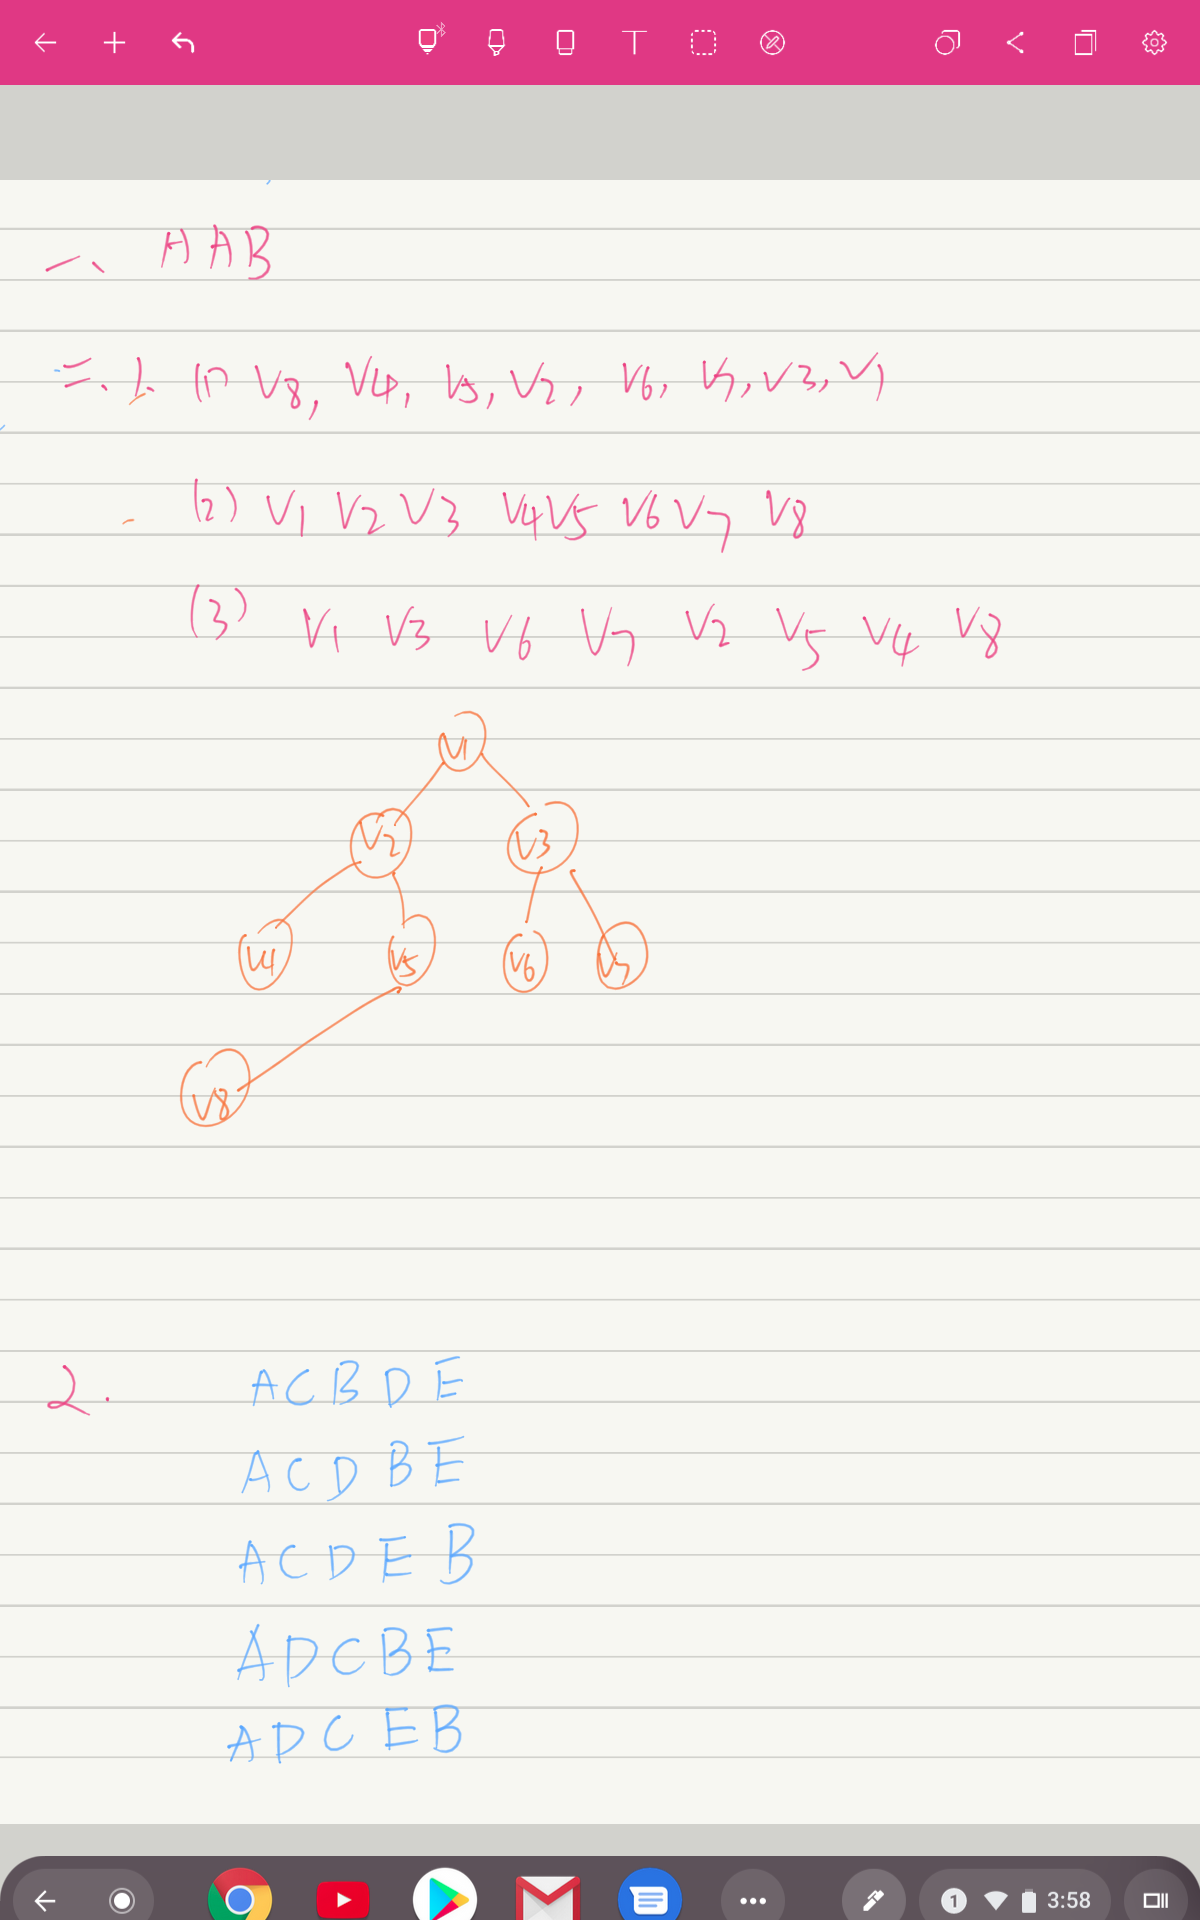 一、 AAB
二、1. (1) V8, V4, V5, V2, V6, V7, V3, V1
(2) V1 V2 V3 V4 V5 V6 V7 V8
(3) V1 V3 V6 V7 V2 V5 V4 V8
V1
V2 V3
V4 V5 V6 V7
V8
2. ACBDE
ACDBE
ACDEB
ADCBE
ADCEB
1 3:58